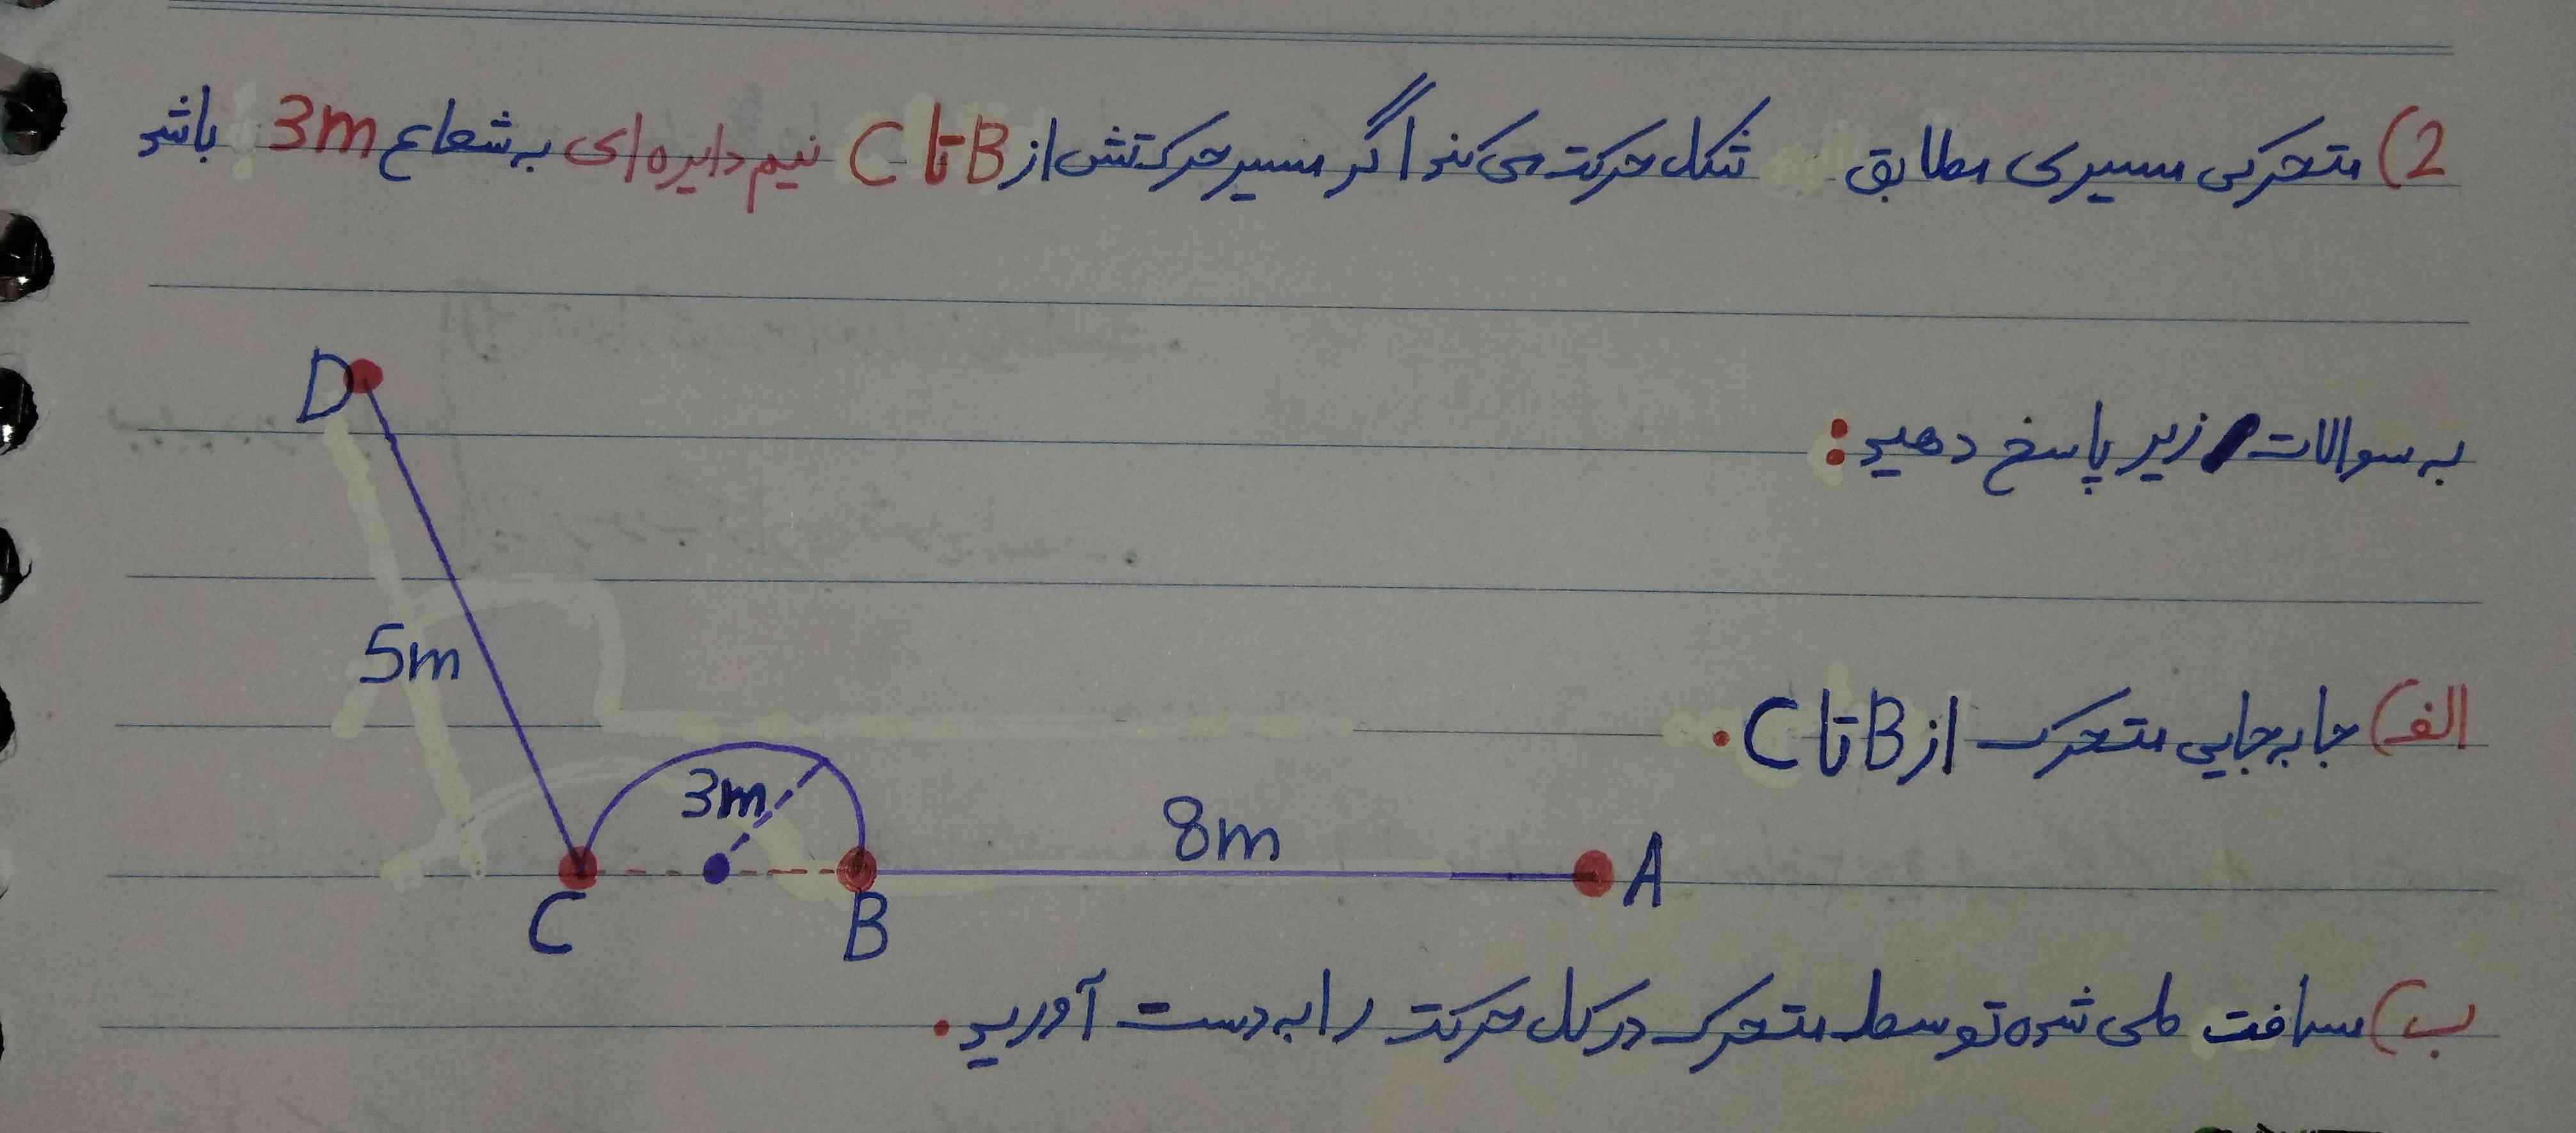 2) متحرکی مسیری مطابق شکل حرکت می کند اگر مسیر حرکتش از B تا C نیم دایره ای به شعاع 3m باشد
به سوالات زیر پاسخ دهید:
D
5m
الف) جابه جایی متحرک از B تا C.
3m
8m
A
C
B
ب) مسافت طی شده توسط متحرک در کل حرکت را به دست آورید.